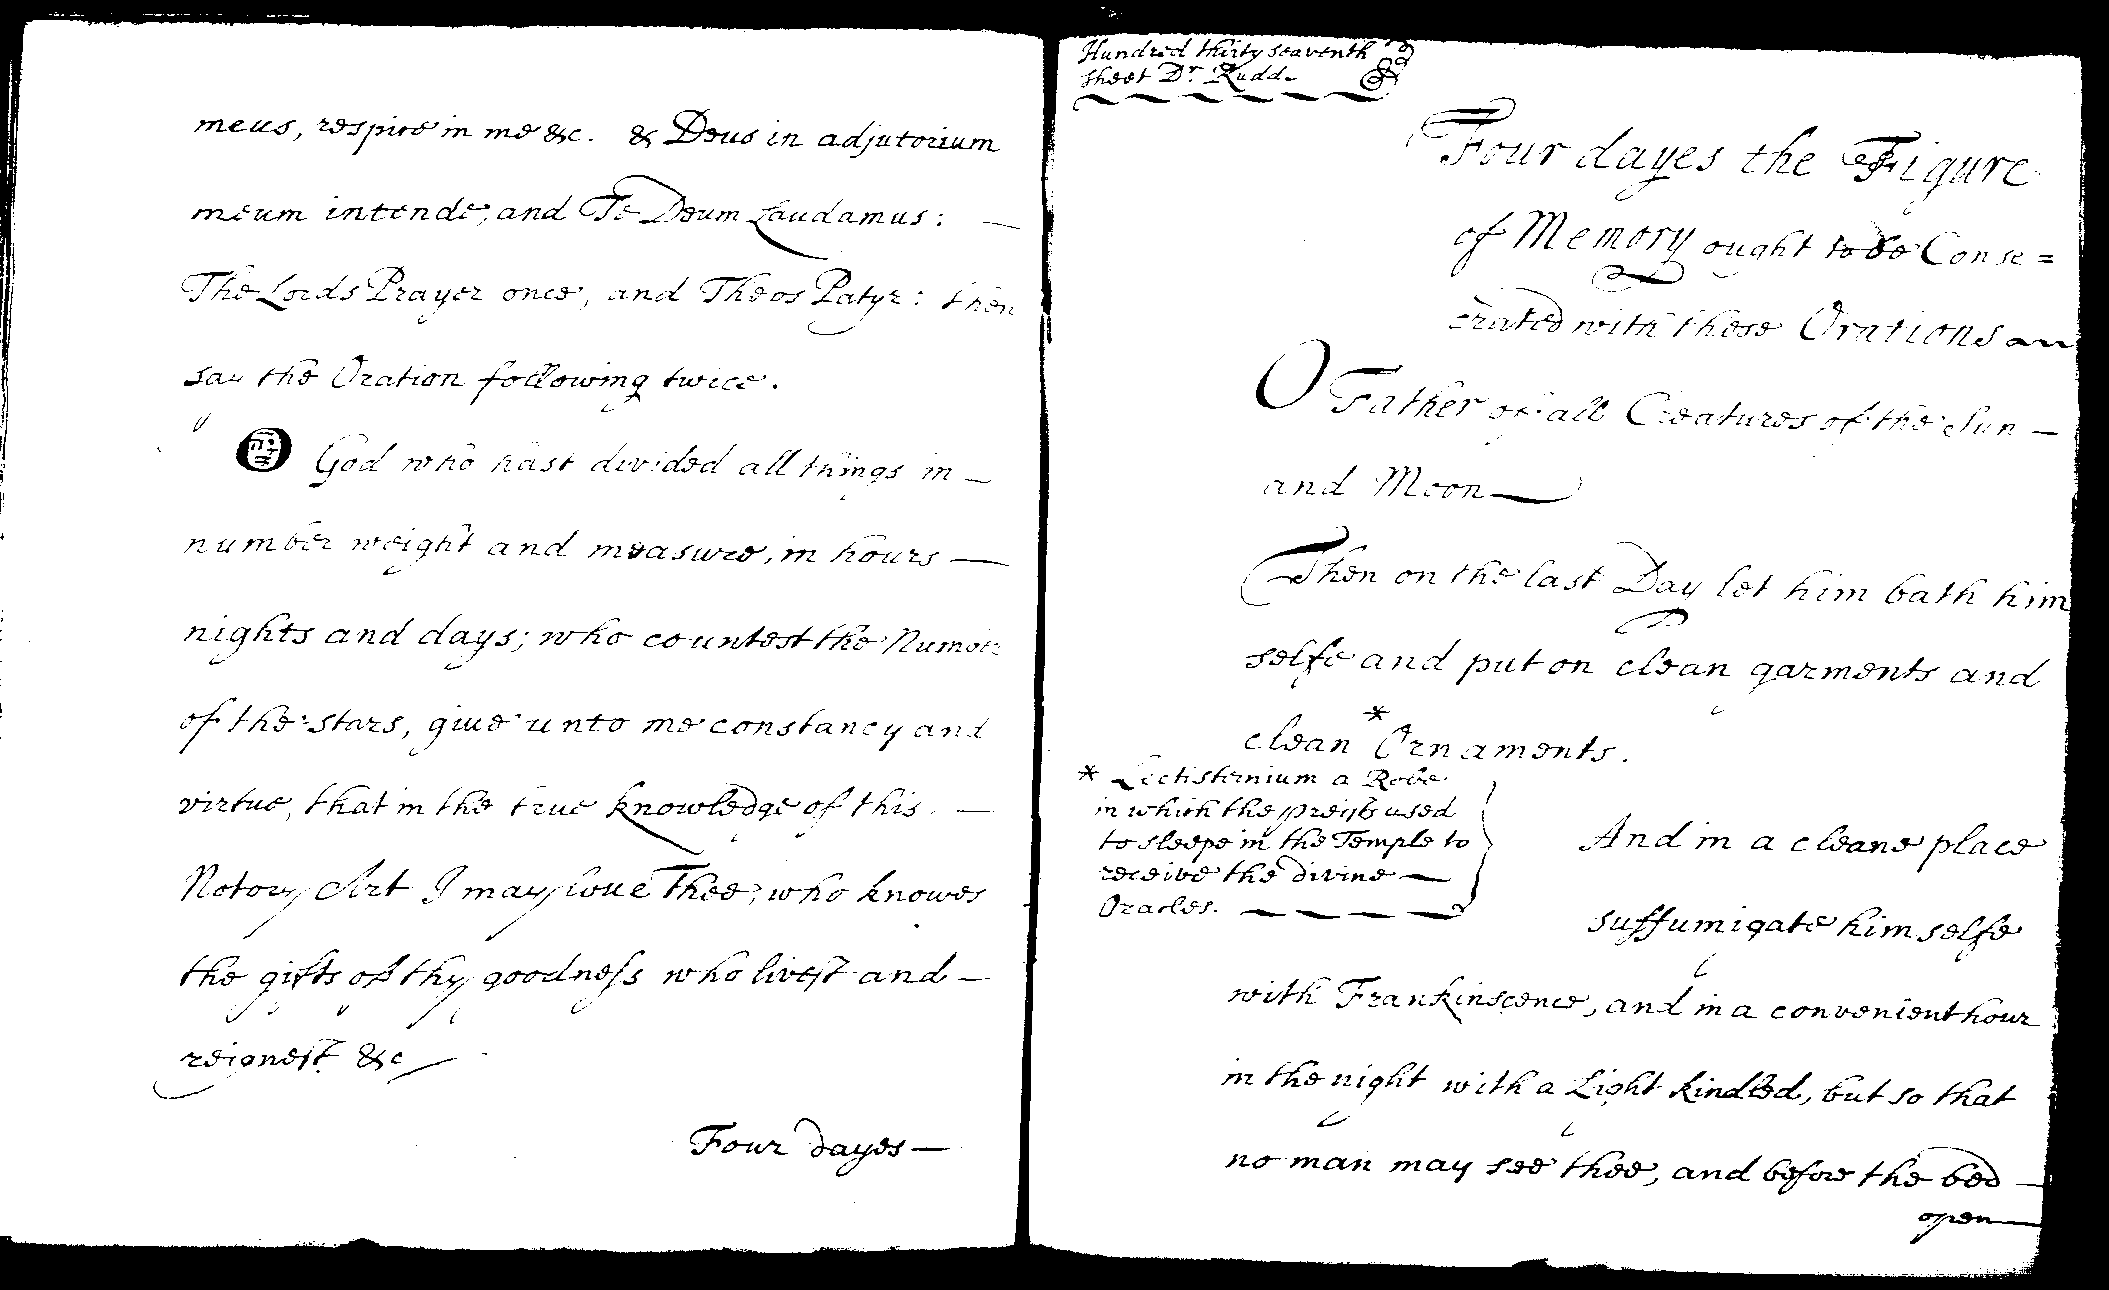 meus, respire in me &c. & Deus in adjutorium
meum intende, and Te Deum Laudamus: —
The Lords Prayer once, and Theos Patyr: then
say the Oration following twice.
O God who hast divided all things in —
number weight and measure, in hours —
nights and days; who countest the Number
of the stars, giue unto me constancy and
virtue, that in the true knowledge of this —
Notory Art I may loue Thee, who knowes
the gifts of thy goodness who livest and —
reignest &c
Four dayes —
Hundred thirty seaventh
sheet Dr. Rudd.
Four dayes the Figure
of Memory ought to be Conse=
crated with these Orations
O Father of all Creatures of the Sun —
and Moon —
Then on the last Day let him bath him
selfe and put on clean garments and
clean * Ornaments.
* Lectisternium a Robe
in which the preists used
to sleepe in the Temple to
receive the divine —
Oracles. — — — —
And in a cleane place
suffumigate himselfe
with Frankinscence, and in a convenient hour
in the night with a Light kindled, but so that
no man may see thee, and before the bed —
open —